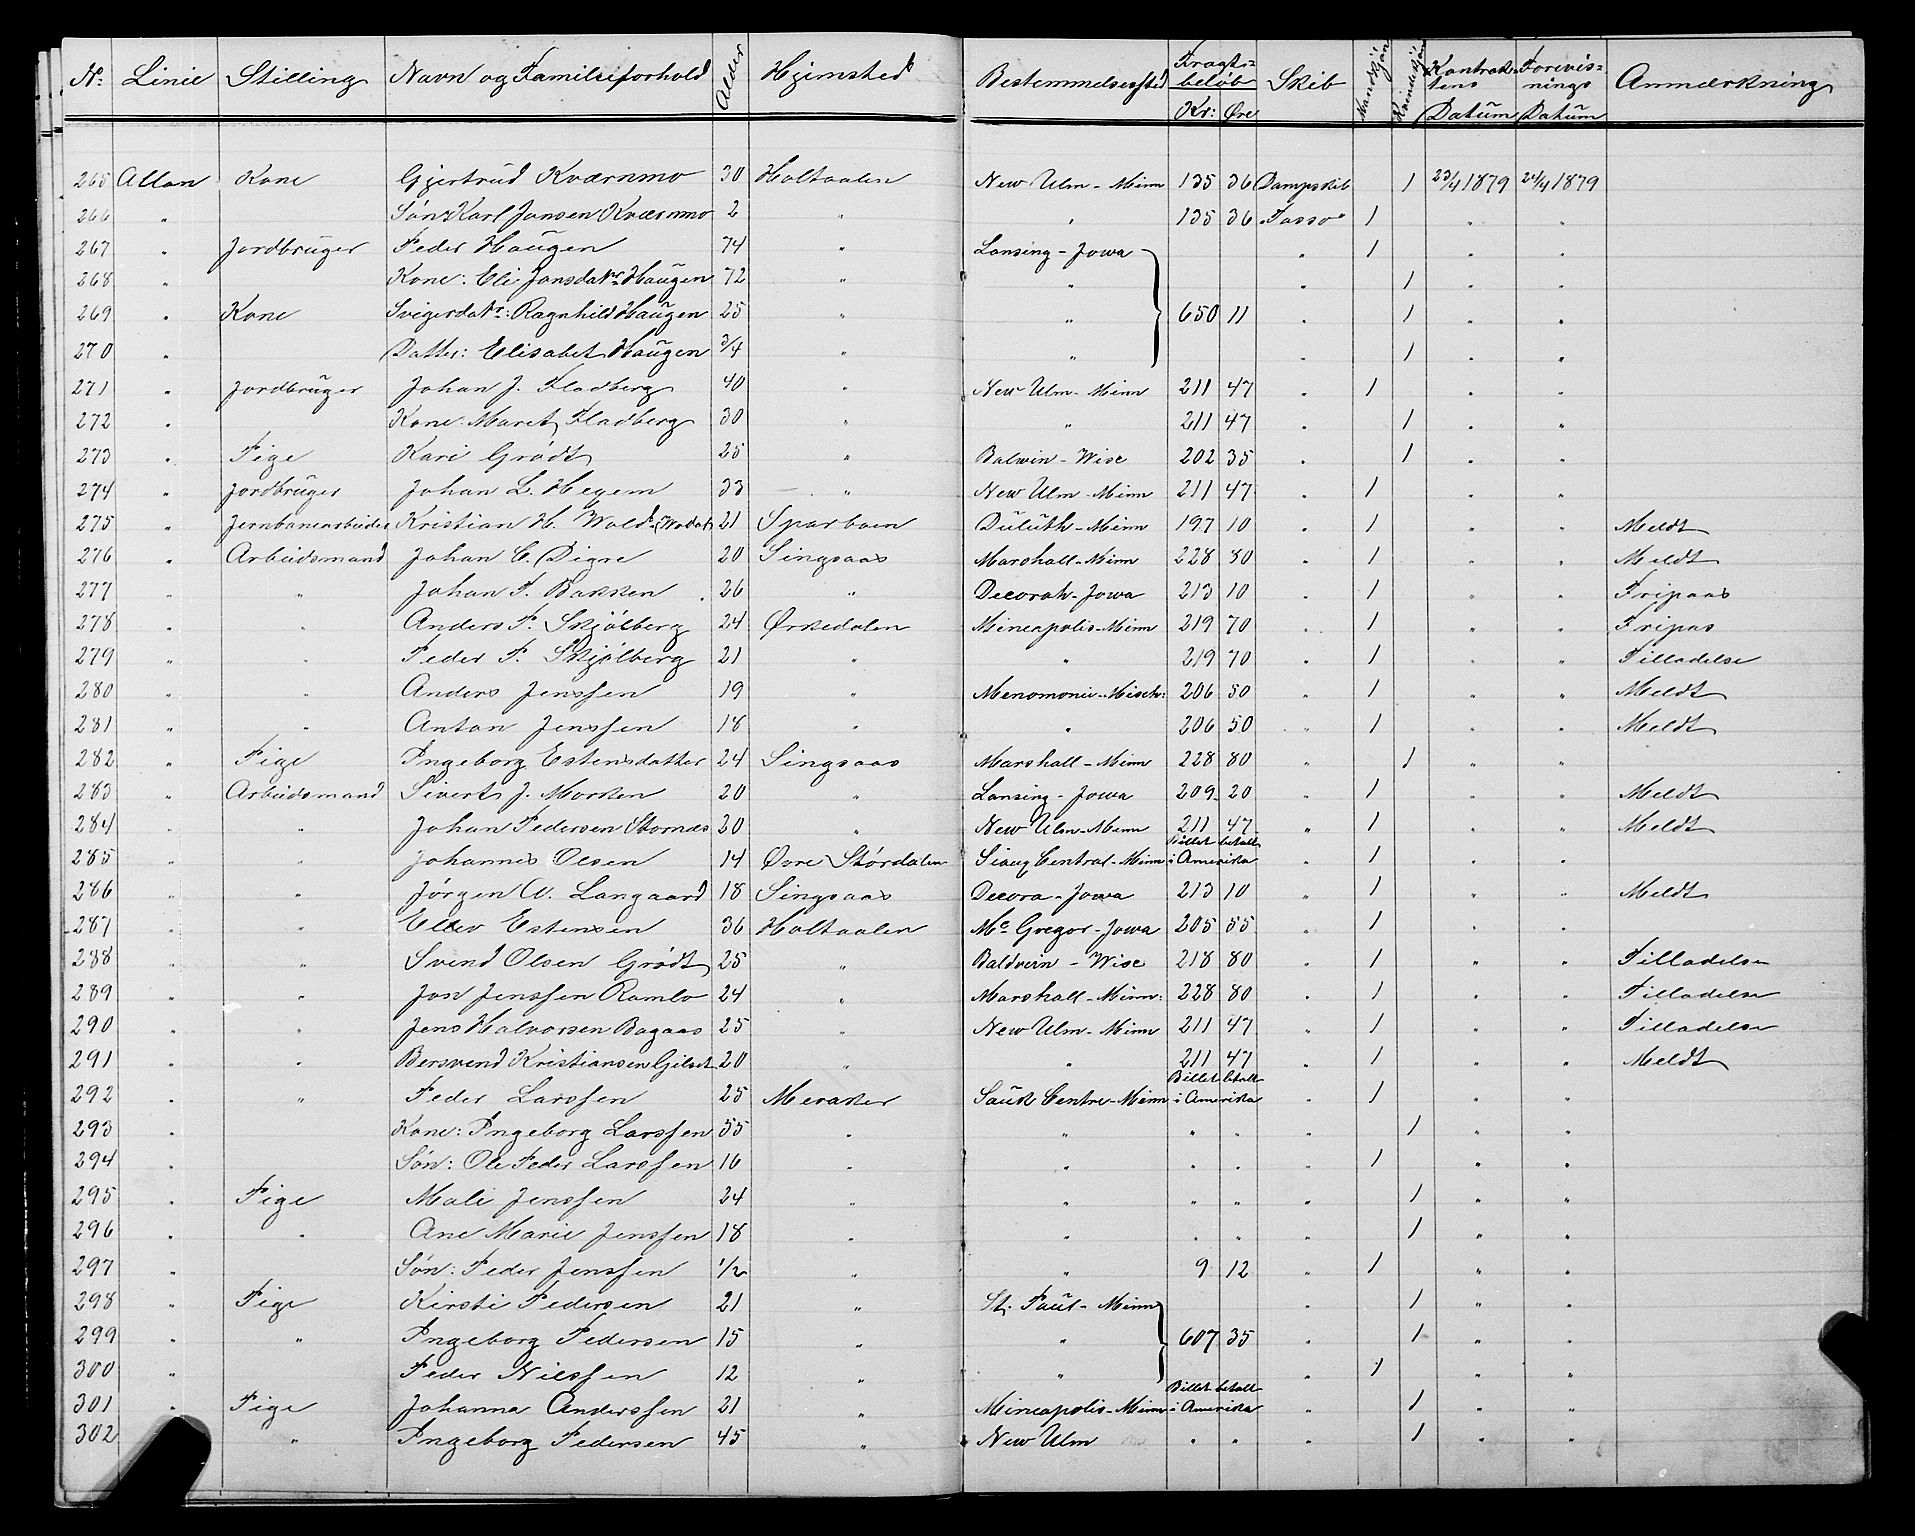 No: Linie Stilling Navn og Familieforhold Alder Hjemsted Bestemmelsessted Fragtbeløb Kr: Øre Skib Mandkjøn Kvindekjøn Kontraktens Datum Forevisnings Datum Anmærkning
265 Allan Kone Gjertrud Kværnmo 30 Holtaalen New Ulm - Minn 135 36 Dampskib 1 23/4 1879 24/4 1879
266 " Søn Karl Jonsen Kværnmo 2 " " 135 36 "Tasso" 1 " "
267 " Jordbruger Peder Haugen 74 " Lansing - Jowa " 1 " "
268 " Kone: Eli Jonsdatr Haugen 72 " " " 1 " "
269 " Kone Svigerdatr: Ragnhild Haugen 25 " " 650 11 " 1 " "
270 " Datter: Elisabet Haugen 3/4 " " " 1 " "
271 " Jordbruger Johan J. Fladberg 40 " New Ulm - Minn 211 47 " 1 " "
272 " Kone: Maret Fladberg 30 " " 211 47 " 1 " "
273 " Pige Kari Grødt 25 " Balwin - Wisc 202 35 " 1 " "
274 " Jordbruger Johan L. Hegem 33 " New Ulm - Minn 211 47 " 1 " "
275 " Jernbanearbeider Kristian H. Wold 21 Sparboen Duluth - Minn 197 10 " 1 " " Meldt
276 " Arbeidsmand Johan C. Digre 20 Singsaas Marshall - Minn 228 80 " 1 " " Meldt
277 " " Johan P. Bakken 26 " Decorah - Jowa 213 10 " 1 " " Fripaas
278 " " Anders P. Skjølberg 24 Ørkedalen Mineapolis - Minn 219 70 " 1 " " Fripas
279 " " Peder P. Skjølberg 21 " " 219 70 " 1 " " Tilladelse
280 " " Anders Jenssen 19 " Menomonie - Misch: 206 50 " 1 " " Meldt
281 " " Anton Jenssen 18 " " 206 50 " 1 " " Meldt
282 " Pige Ingeborg Estensdatter 24 Singsaas Marshall - Minn 228 80 " 1 " "
283 " Arbeidsmand Sivert J. Morken 20 " Lansing - Jowa 209 20 " 1 " " Meldt
284 " " Johan Pedersen Stornæs 20 " New Ulm - Minn 211 47 " 1 " " Meldt
285 " " Johannes Olsen 14 Øvre Størdalen Siauq Central - Minn Billet betalt i Amerika " 1 " "
286 " " Jørgen A. Langaard 18 Singsaas Decora - Jowa 213 10 " 1 " " Meldt
287 " " Ellev Estensen 36 Holtaalen Mc Gregor - Jowa 205 55 " 1 " "
288 " " Svend Olsen Grødt 25 " Baldvein - Wisc 218 80 " 1 " " Tilladelse
289 " " Jon Jenssen Ramlo 24 " Marshall - Minn: 228 80 " 1 " " Tilladelse
290 " " Jens Halvorsen Bagaas 25 " New Ulm - Minn 211 47 " 1 " " Tilladelse
291 " " Bersvend Kristiansen Gilset 20 " " 211 47 " 1 " " Meldt
292 " " Peder Larssen 25 Meraker Sauk Centre - Minn Billet betalt i Amerika " 1 " "
293 " Kone: Ingeborg Larssen 55 " " " " " 1 " "
294 " Søn: Ole Peder Larssen 16 " " " " " 1 " "
295 " Pige Mali Jenssen 24 " " " " " 1 " "
296 " " Ane Marie Jenssen 18 " " " " " 1 " "
297 " Søn: Peder Jenssen 1/2 " " 9 12 " 1 " "
298 " Pige Kirsti Pedersen 21 " St. Paul - Minn " 1 " "
299 " " Ingeborg Pedersen 15 " " 607 35 " 1 " "
300 " Peder Nilssen 12 " " " 1 " "
301 " Pige Johanna Anderssen 21 " Mineapolis - Minn Billet betalt i Amerika " 1 " "
302 " " Ingeborg Pedersen 45 " New Ulm " " " 1 " "